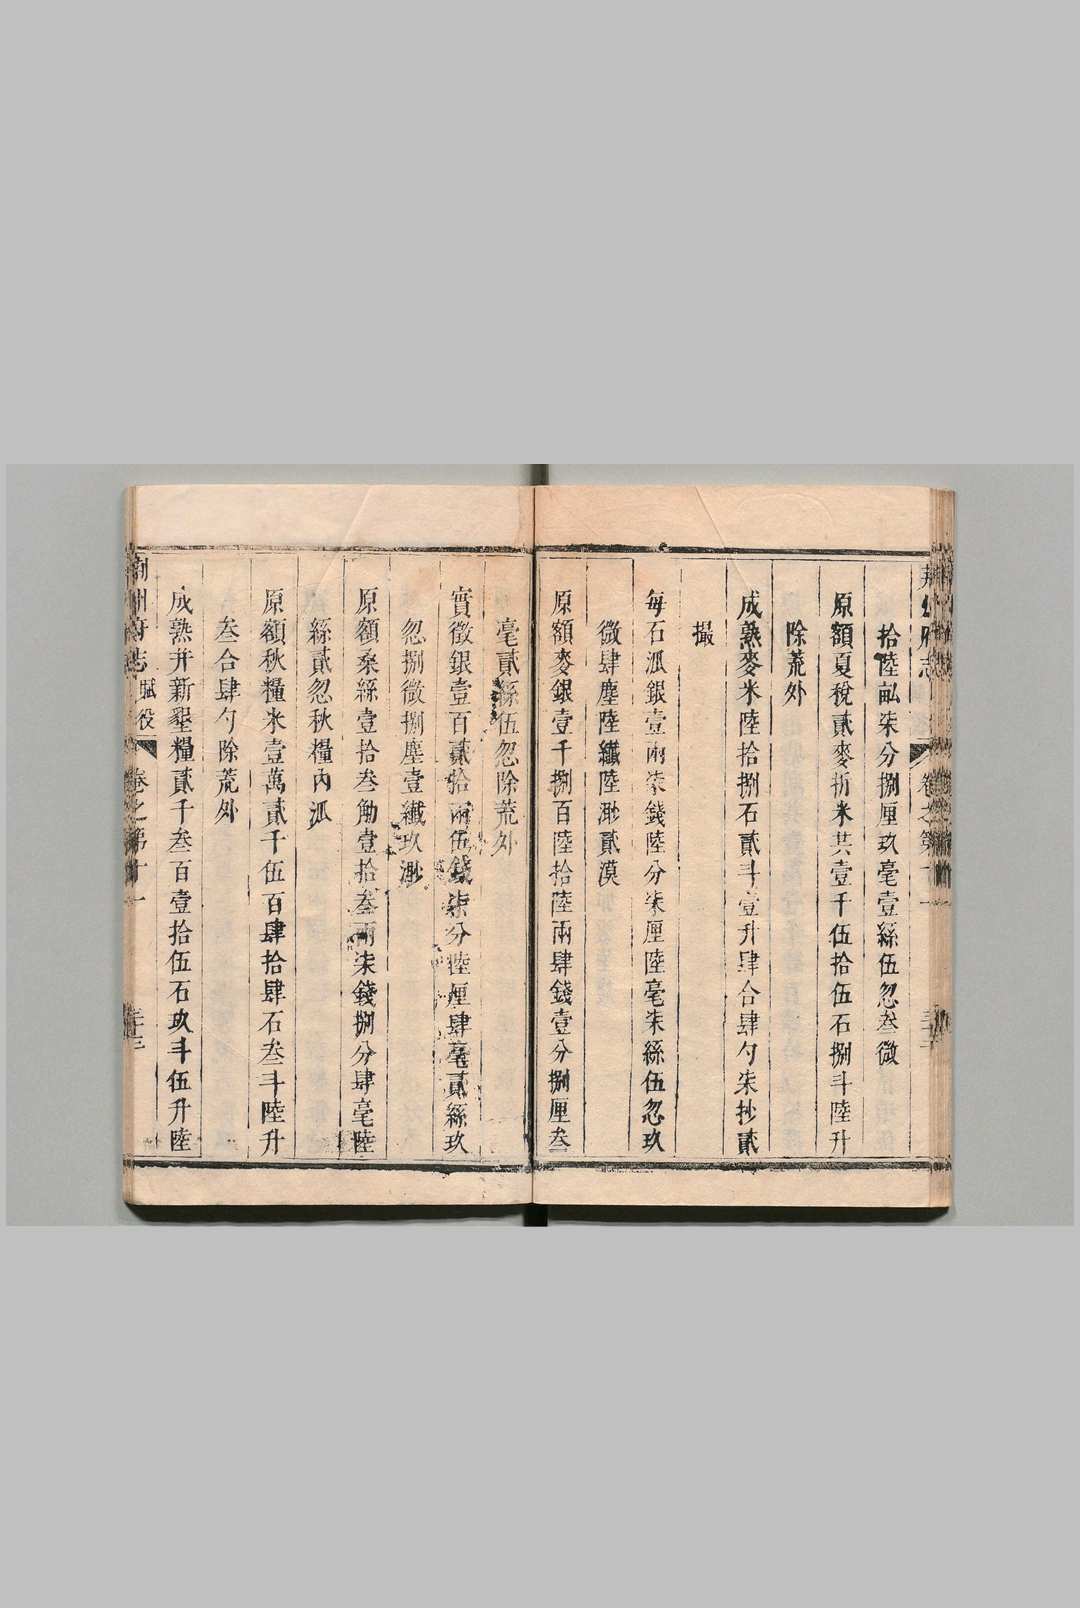 拾陸畝柒分捌厘玖毫壹絲伍忽叁微
原額夏稅貳麥折米共壹千伍拾伍石捌斗陸升
除荒外
成熟麥米陸拾捌石貳斗壹升肆合肆勺柒抄貳
撮
每石派銀壹兩柒錢陸分柒厘陸毫柒絲伍忽玖
微肆塵陸纖陸渺貳漠
原額麥銀壹千捌百陸拾陸兩肆錢壹分捌厘叁
毫貳絲伍忽除荒外
實徵銀壹百貳拾兩伍錢柒分陸厘肆毫貳絲玖
忽捌微捌塵壹纖玖渺
原額桑絲壹拾叁觔壹拾叁兩柒錢捌分肆毫陸
絲貳忽秋糧內派
原額秋糧米壹萬貳千伍百肆拾肆石叁斗陸升
叁合肆勺除荒外
成熟并新墾糧貳千叁百壹拾伍石玖斗伍升陸
荆州府志 賦役 卷之第十一